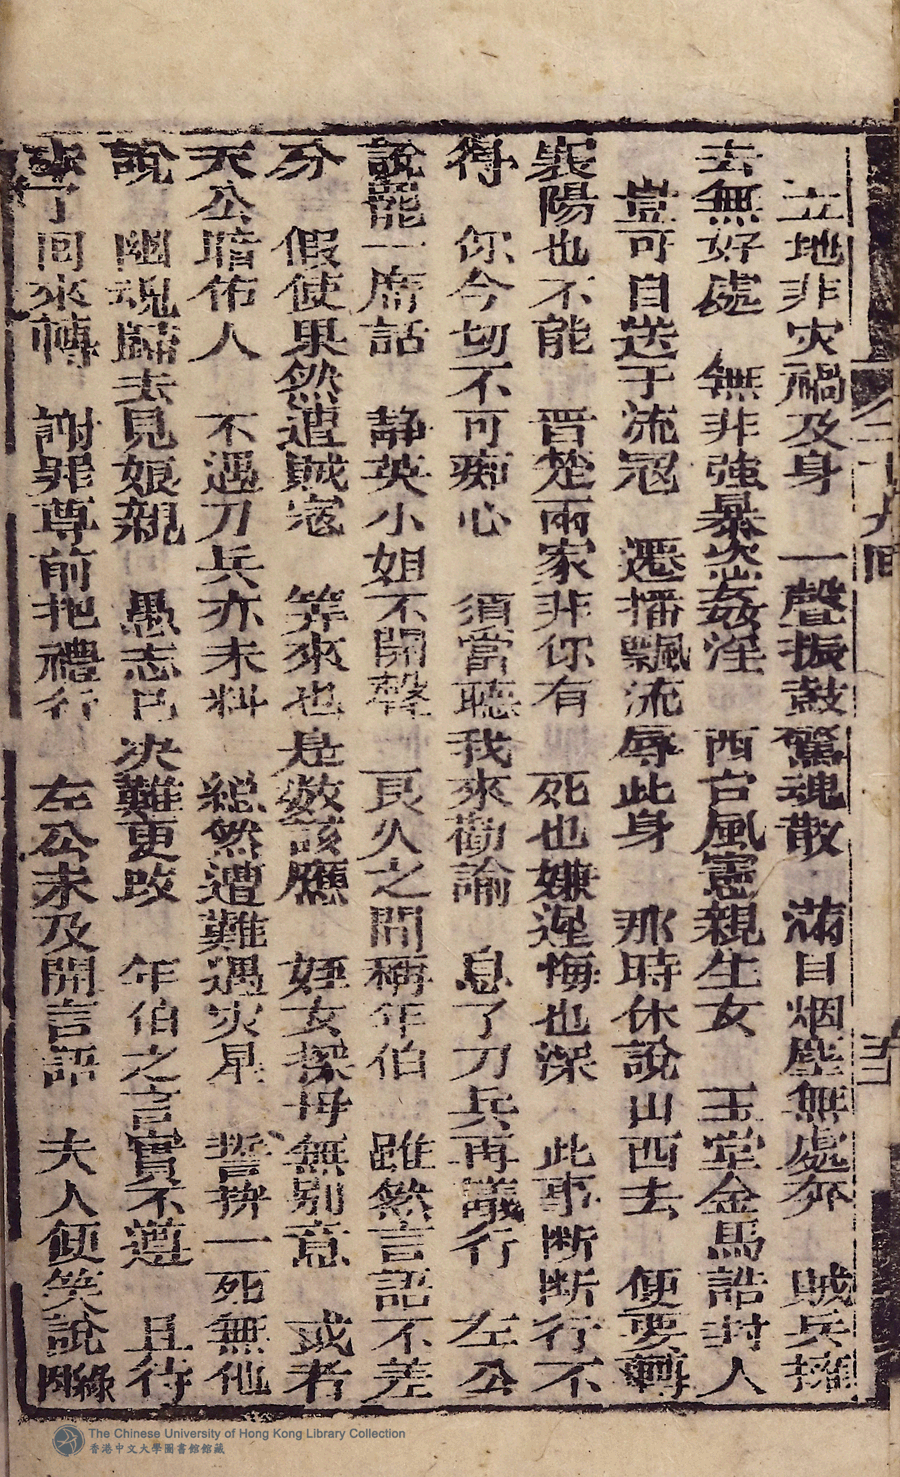 立地非灾禍及身　一聲振鼓驚魂散　滿目烟塵無處奔　賊兵擁
去無好處　無非強暴恣姦淫　西台風憲親生女　玉堂金馬誥封人
豈可自送于流寇　遷播飄流辱此身　那時休說山西去　便要轉
襄陽也不能　晋楚兩家非你有　死也嫌遲悔也深　此事断断行不
得　你今切不可痴心　須當聽我來勸諭　息了刀兵再議行　左公
說罷一席話　静英小姐不開聲　良久之間稱年伯　雖然言語不差
分　假使果然遭賊寇　筭來也是数該應　姪女探母無別意　或者
天公暗佑人　不遇刀兵亦未料　縂然遭難遇灾星　誓拚一死無他
說　幽魂歸去見娘親　愚志已决難更改　年伯之言實不遵　且待
了回來轉　謝罪尊前把禮行　左公未及開言語　夫人便笑說
二十九回
The Chinese University of Hong Kong Library Collection
香港中文大學圖書館館藏